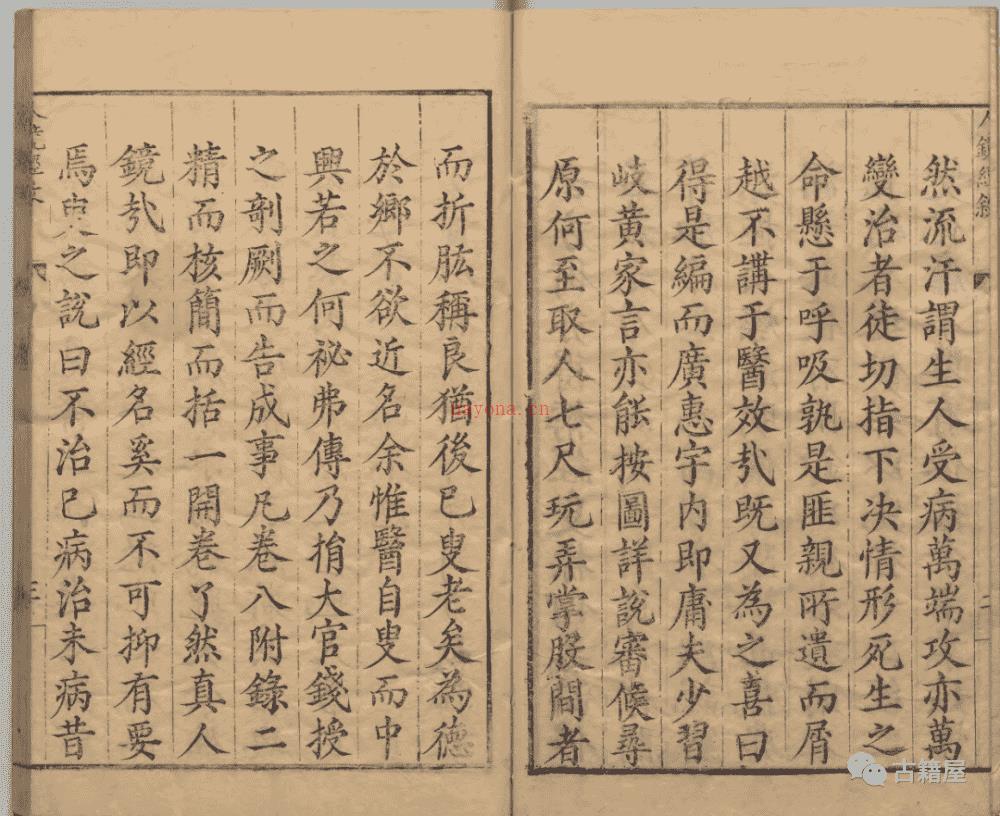 人鏡經敘
二
然流汗謂生人受病萬端攻亦萬
變治者徒切指下決情形死生之
命懸于呼吸孰是匪親所遺而屑
越不講于醫效㢤既又為之喜曰
得是編而廣惠宇内即庸夫少習
岐黃家言亦能按圖詳說審候尋
原何至取人七尺玩弄掌股間者
而折肱稱良猶後已叟老矣為德
於鄉不欲近名余惟醫自叟而中
興若之何祕弗傳乃捐大官錢授
之剞劂而告成事凡卷八附錄二
精而核簡而括一開卷了然真人
鏡㢤即以經名奚而不可抑有要
焉史之說曰不治已病治未病昔
三
nayona.cn
古籍屋